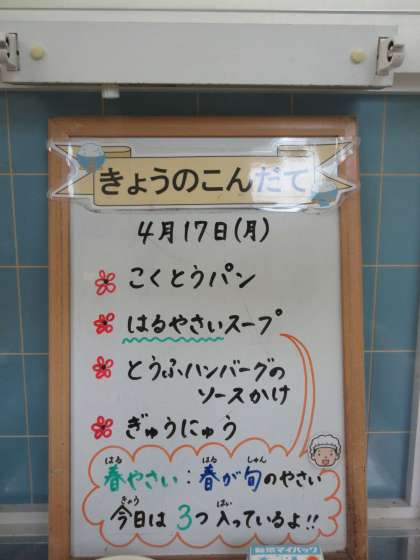 きょうのこんだて
4月17日(月)
こくとうパン
はるやさいスープ
とうふハンバーグの
ソースかけ
ぎゅうにゅう
はる はる しゅん
春やさい:春が旬のやさい
きょう はい
今日は3つ入っているよ!!